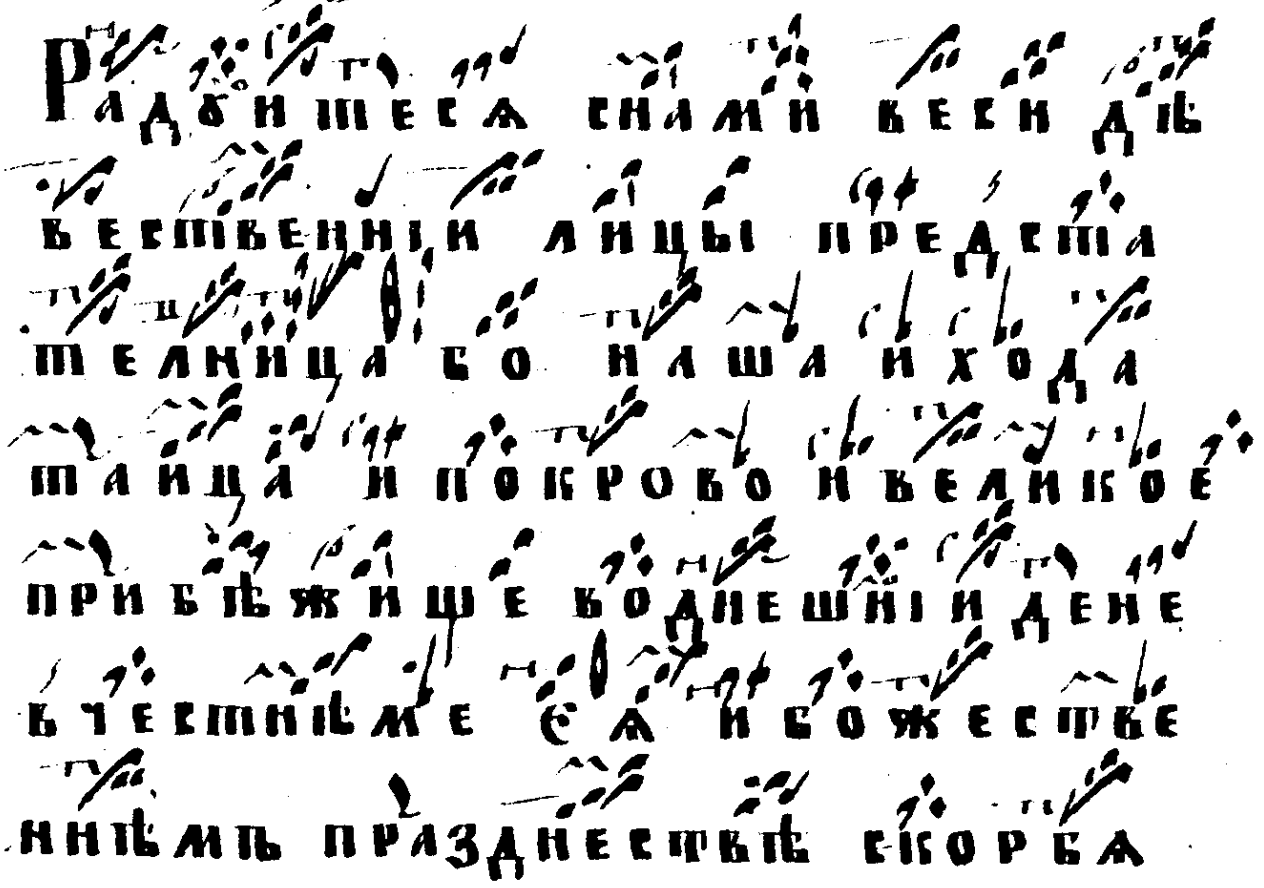 Радꙋитесѧ снами вси дѣ
вественнїи лицы предста
телница бо наша и хода
таица и покрово и великое
прибѣжище воднешнїи дене
вчестнѣме еѧ и божестве
ннѣмъ празднествѣ скорбѧ